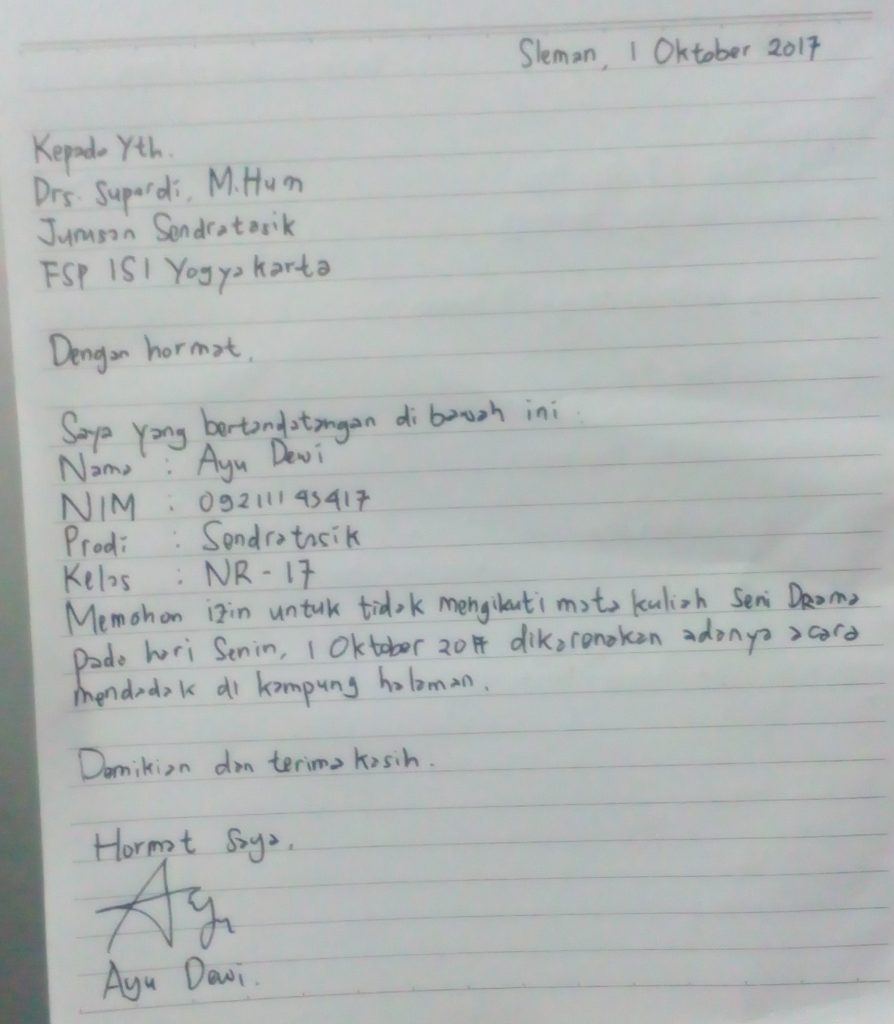 Sleman, 1 Oktober 2017
Kepada Yth.
Drs. Supardi, M.Hum
Jurusan Sendratasik
FSP ISI Yogyakarta
Dengan hormat,
Saya yang bertandatangan di bawah ini :
Nama : Ayu Dewi
NIM : 09211145417
Prodi : Sendratasik
Kelas : NR - 17
Memohon izin untuk tidak mengikuti mata kuliah Seni Drama
pada hari Senin, 1 Oktober 2017 dikarenakan adanya acara
mendadak di kampung halaman.
Demikian dan terima kasih.
Hormat saya,
Ayu
Ayu Dewi.